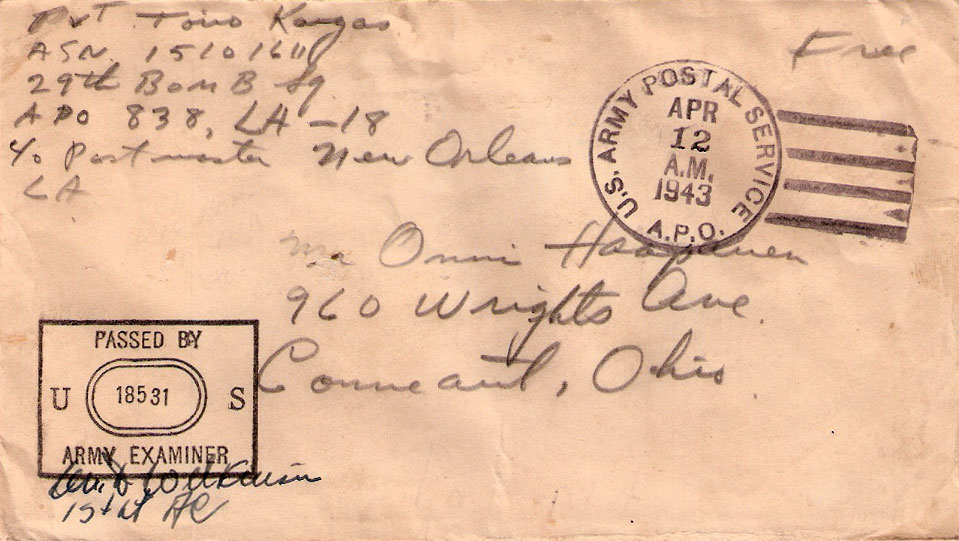 Pvt Toivo Kangas
ASN. 15101611
29th BomB Sq.
APO 838, LA -18
c/o Postmaster New Orleans
LA
Free
U.S. ARMY POSTAL SERVICE
APR
12
A.M.
1943
A.P.O.
Mr Onni Haapanen
960 Wrights Ave.
Conneaut, Ohio
PASSED BY
U 18531 S
ARMY EXAMINER
1st Lt AC